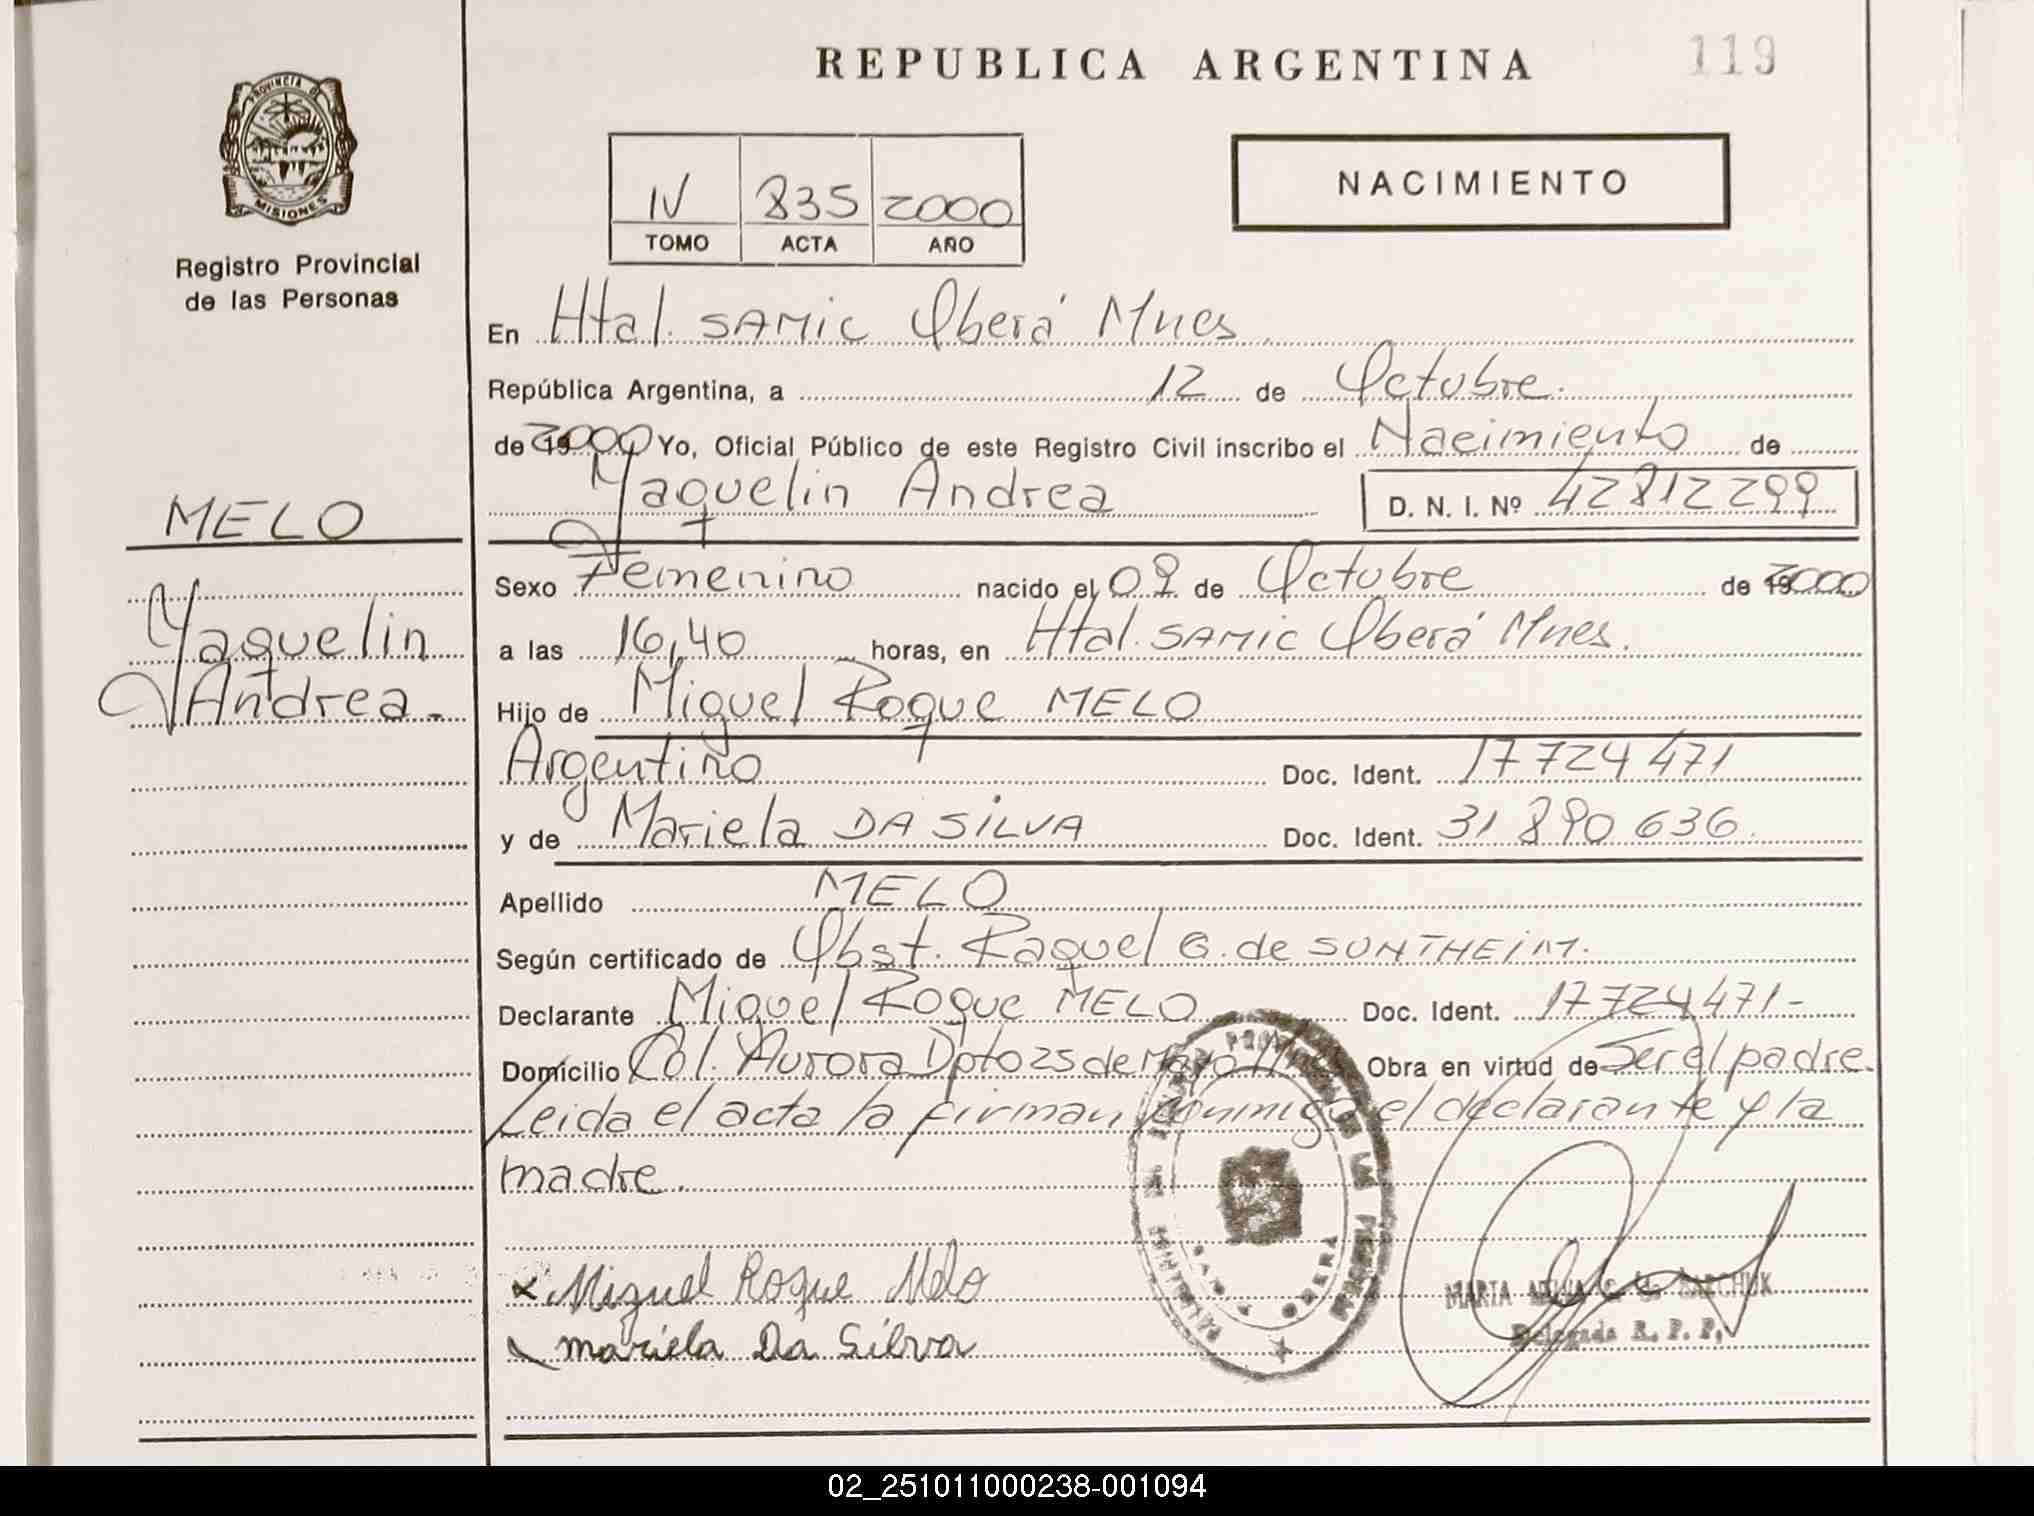 REPUBLICA ARGENTINA
119
PROVINCIA DE
MISIONES
Registro Provincial
de las Personas
IV 835 2000
TOMO ACTA AÑO
NACIMIENTO
En Htal. SAMIC Oberá Mnes.
República Argentina, a 12 de Octubre.
de 2000 Yo, Oficial Público de este Registro Civil inscribo el Nacimiento de
Yaquelin Andrea D. N. I. Nº 42812299
MELO
Yaquelin
Andrea.
Sexo Femenino nacido el 09 de Octubre de 2000
a las 16,40 horas, en Htal. SAMIC Oberá Mnes.
Hijo de Miguel Roque MELO
Argentino Doc. Ident. 17724471
y de Mariela DA SILVA Doc. Ident. 31890636.
Apellido MELO
Según certificado de Obst. Raquel G. de SUNTHEIM.
Declarante Miguel Roque MELO Doc. Ident. 17724471-
Domicilio Col. Aurora Dpto 25 de Mayo Mnes Obra en virtud de Ser el padre.
Leida el acta la firman conmigo el declarante y la
madre.
x Miguel Roque Melo
mariela Da Silva
MARIA
Delegada R. P. P.
OBERA
02_251011000238-001094